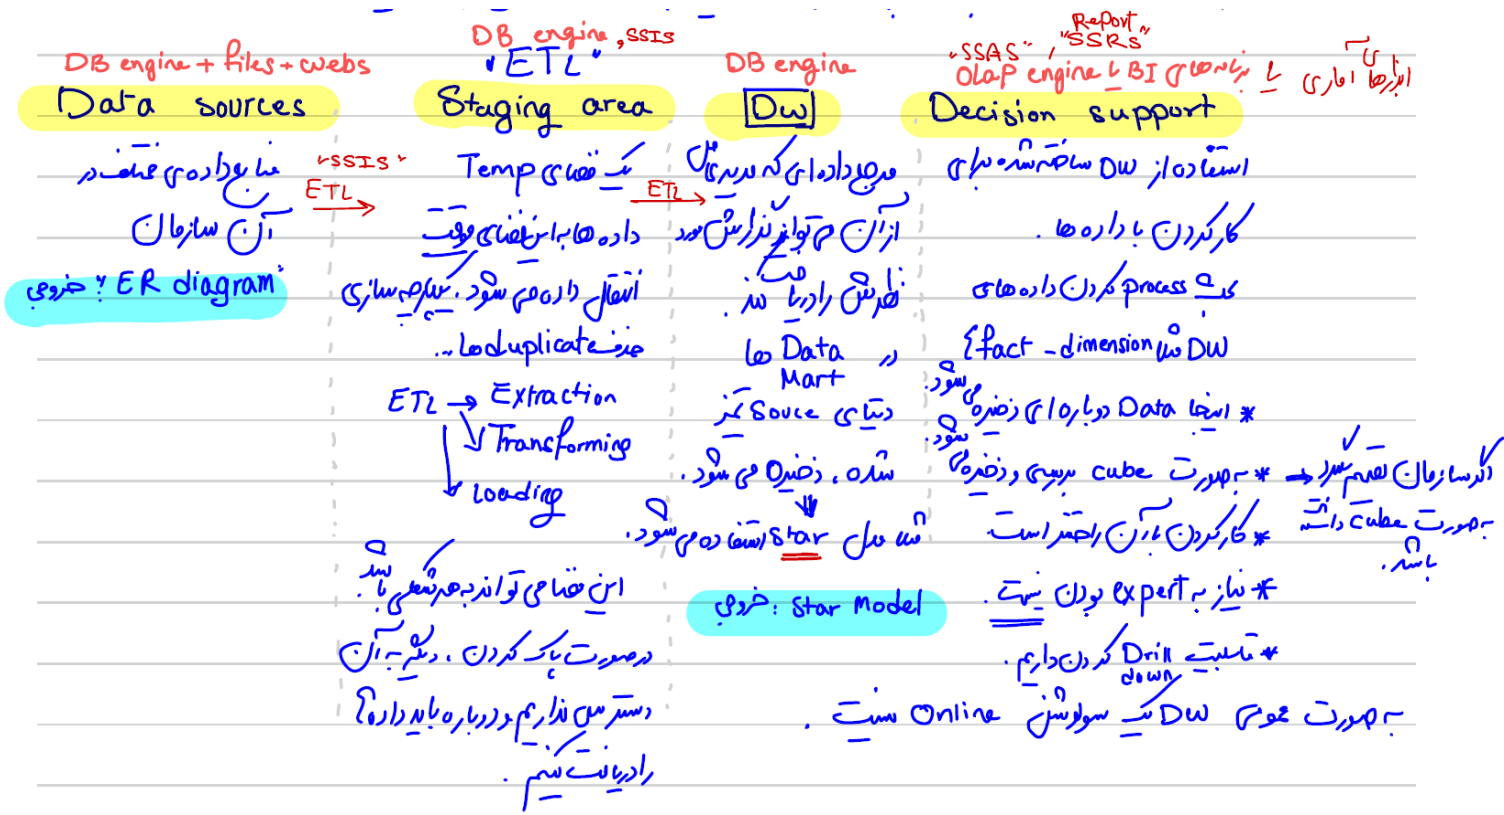 DB engine + files + webs
Data sources
منابع داده‌ی مختلف در
آن سازمان
خروجی: "ER diagram"
"SSIS"
ETL
DB engine, SSIS
"ETL"
Staging area
یک فضای Temp
داده ها به این فضای موقت
انتقال داده می شود. یکپارچه سازی
حذف duplicate ها ...
ETL → Extraction
Transforming
Loading
این فضا می تواند به هر شکلی باشد.
در صورت پاک کردن، دیگر به آن
دسترسی نداریم و دوباره باید داده ها
را دریافت کنیم.
ETL
DB engine
DW
مرجع داده ای که مدیر
از آن می تواند گزارش مورد
نظرش را دریافت کند.
در Data Mart ها
دیتای Souce تمیز
شده، ذخیره می شود.
مدل Star استفاده می شود.
خروجی: Star Model
Report
"SSAS", "SSRS"
OLAP engine یا برنامه های BI یا ابزارهای آماری
Decision support
استفاده از DW ساخته شده برای
کار کردن با داده ها.
process کردن داده های
DW شامل fact - dimension
* اینجا Data دوباره ای ذخیره می شود.
* به صورت cube بررسی و ذخیره می شود.
← اگر سازمان تصمیم بگیرد
به صورت Cube داشته
باشد.
* کار کردن با آن راحتتر است.
* نیاز به expert بودن نیست.
* قابلیت Drill down کردن داریم.
به صورت عمومی DW یک سولوشن Online نیست.